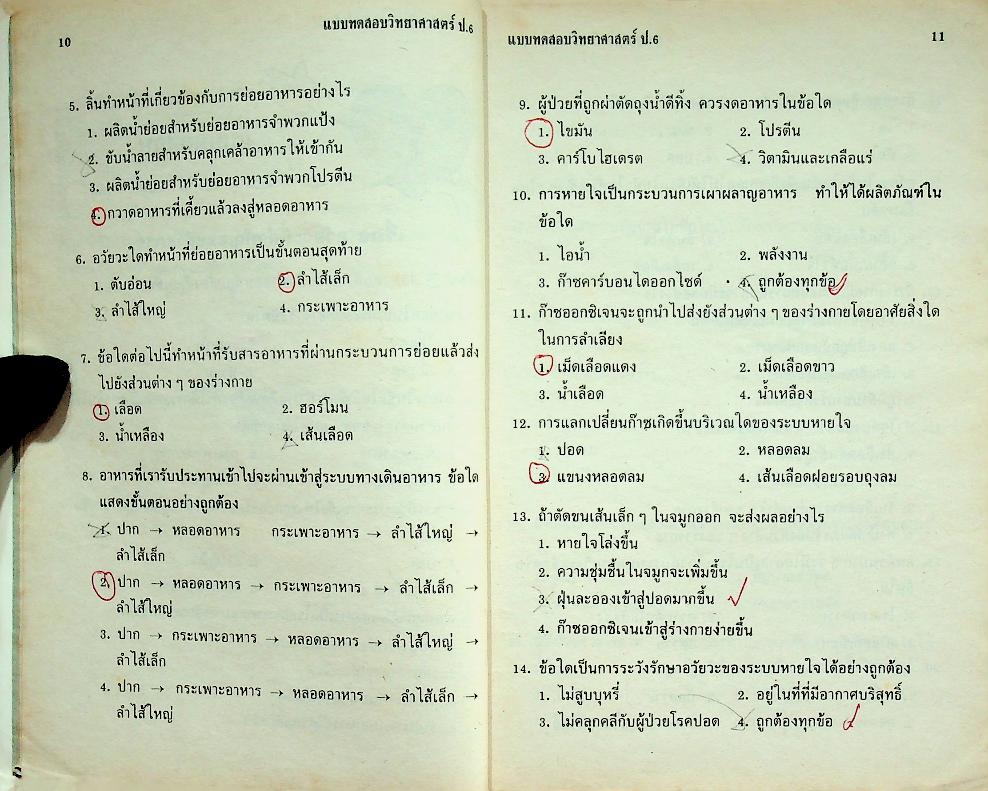 10
แบบทดสอบวิทยาศาสตร์ ป.6
5. ลิ้นทำหน้าที่เกี่ยวข้องกับการย่อยอาหารอย่างไร
1. ผลิตน้ำย่อยสำหรับย่อยอาหารจำพวกแป้ง
2. ขับน้ำลายสำหรับคลุกเคล้าอาหารให้เข้ากัน
3. ผลิตน้ำย่อยสำหรับย่อยอาหารจำพวกโปรตีน
4. กวาดอาหารที่เคี้ยวแล้วลงสู่หลอดอาหาร
6. อวัยวะใดทำหน้าที่ย่อยอาหารเป็นขั้นตอนสุดท้าย
1. ตับอ่อน 2. ลำไส้เล็ก
3. ลำไส้ใหญ่ 4. กระเพาะอาหาร
7. ข้อใดต่อไปนี้ทำหน้าที่รับสารอาหารที่ผ่านกระบวนการย่อยแล้วส่ง
ไปยังส่วนต่าง ๆ ของร่างกาย
1. เลือด 2. ฮอร์โมน
3. น้ำเหลือง 4. เส้นเลือด
8. อาหารที่เรารับประทานเข้าไปจะผ่านเข้าสู่ระบบทางเดินอาหาร ข้อใด
แสดงขั้นตอนอย่างถูกต้อง
1. ปาก → หลอดอาหาร กระเพาะอาหาร → ลำไส้ใหญ่ →
ลำไส้เล็ก
2. ปาก → หลอดอาหาร → กระเพาะอาหาร → ลำไส้เล็ก →
ลำไส้ใหญ่
3. ปาก → กระเพาะอาหาร → หลอดอาหาร → ลำไส้ใหญ่ →
ลำไส้เล็ก
4. ปาก → กระเพาะอาหาร → หลอดอาหาร → ลำไส้เล็ก →
ลำไส้ใหญ่
แบบทดสอบวิทยาศาสตร์ ป.6
11
9. ผู้ป่วยที่ถูกผ่าตัดถุงน้ำดีทิ้ง ควรงดอาหารในข้อใด
1. ไขมัน 2. โปรตีน
3. คาร์โบไฮเดรต 4. วิตามินและเกลือแร่
10. การหายใจเป็นกระบวนการเผาผลาญอาหาร ทำให้ได้ผลิตภัณฑ์ใน
ข้อใด
1. ไอน้ำ 2. พลังงาน
3. ก๊าซคาร์บอนไดออกไซด์ 4. ถูกต้องทุกข้อ
11. ก๊าซออกซิเจนจะถูกนำไปส่งยังส่วนต่าง ๆ ของร่างกายโดยอาศัยสิ่งใด
ในการลำเลียง
1. เม็ดเลือดแดง 2. เม็ดเลือดขาว
3. น้ำเลือด 4. น้ำเหลือง
12. การแลกเปลี่ยนก๊าซเกิดขึ้นบริเวณใดของระบบหายใจ
1. ปอด 2. หลอดลม
3. แขนงหลอดลม 4. เส้นเลือดฝอยรอบถุงลม
13. ถ้าตัดขนเส้นเล็ก ๆ ในจมูกออก จะส่งผลอย่างไร
1. หายใจโล่งขึ้น
2. ความชุ่มชื้นในจมูกจะเพิ่มขึ้น
3. ฝุ่นละอองเข้าสู่ปอดมากขึ้น
4. ก๊าซออกซิเจนเข้าสู่ร่างกายง่ายขึ้น
14. ข้อใดเป็นการระวังรักษาอวัยวะของระบบหายใจได้อย่างถูกต้อง
1. ไม่สูบบุหรี่ 2. อยู่ในที่ที่มีอากาศบริสุทธิ์
3. ไม่คลุกคลีกับผู้ป่วยโรคปอด 4. ถูกต้องทุกข้อ